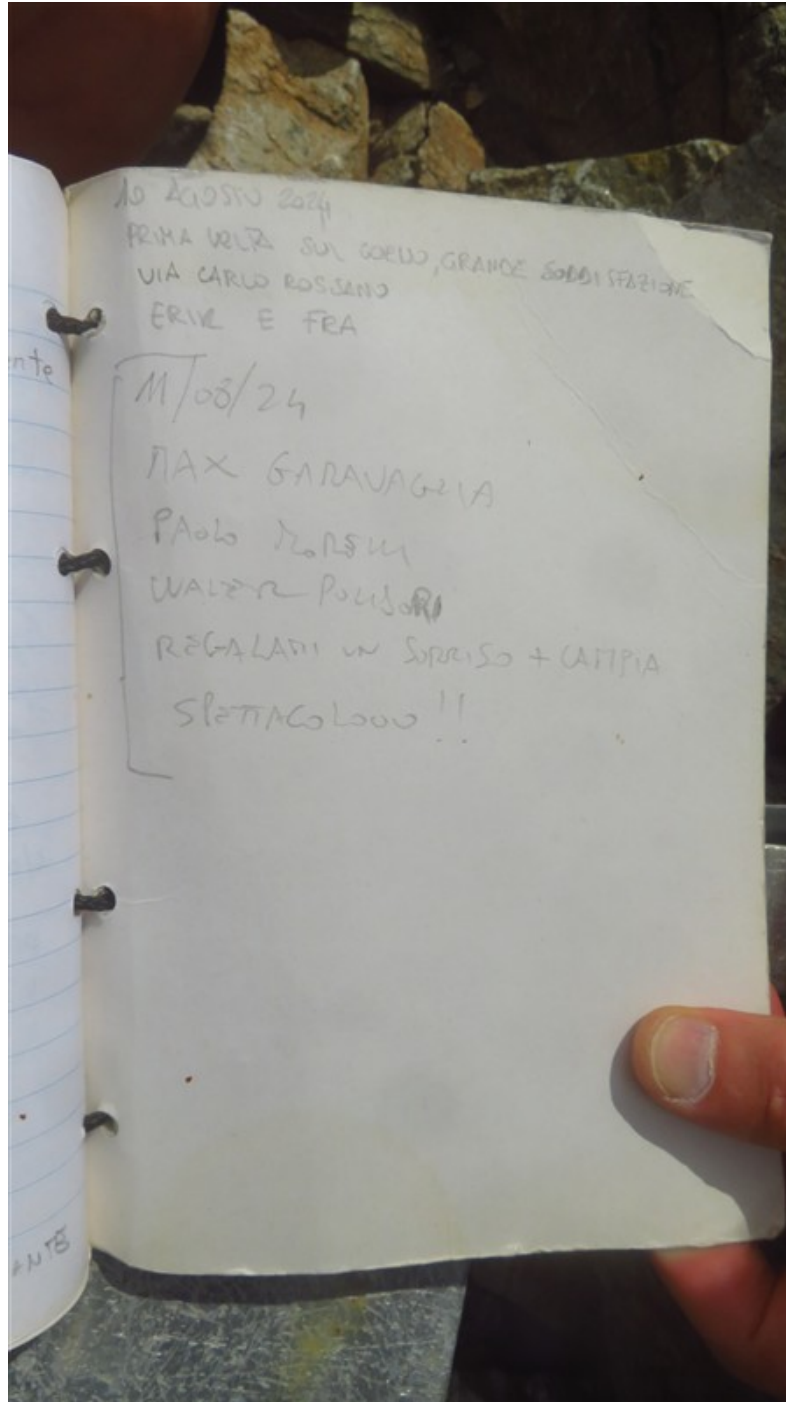 nte
ANTE
10 AGOSTO 2024
PRIMA VOLTA SUL CORNO, GRANDE SODDISFAZIONE
VIA CARLO ROSSANO
ERIK E FRA
11/08/24
MAX GARAVAGLIA
PAOLO MORELLI
WALTER POLIDORI
REGALAMI UN SORRISO + CAMPIA
SPETTACOLOOO!!